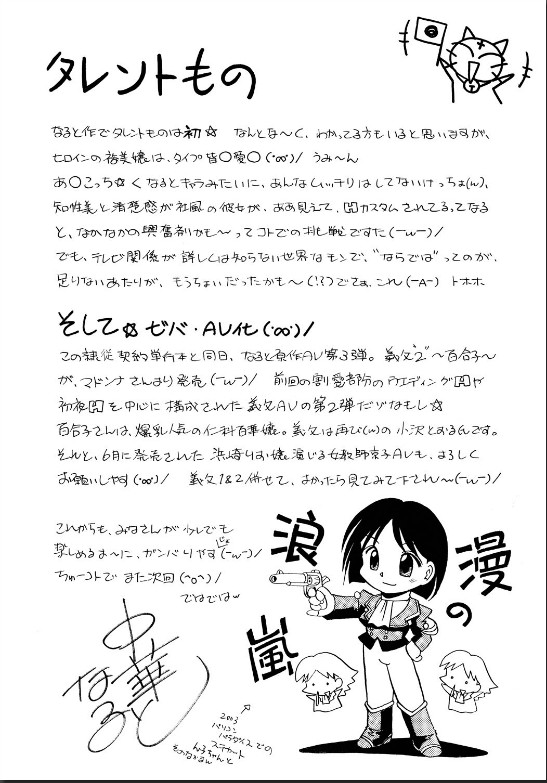 タレントもの
なると作でタレントものは初☆ なんとな〜く、わかってる方もいると思いますが、
ヒロインの裕美嬢は、タイプ皆〇愛〇(・∞・)/ うみ〜ん
あ〇こっち☆くなるとキャラみたいに、あんなムッチリはしてないけっちょ(w)、
知性美と清楚感が社風の彼女が、ああ見えて、カスタムされてるってなる
と、なかなかの興奮剤かも〜ってコトでの挑戦ですた(ーωー)/
でも、テレビ関係が詳しくは知らない世界なモンで、“ならでは”ってのが、
足りないあたりが、もうちょいだったかも〜(!?)でてぁ、これ(ーAー) トホホ
そして☆ ゼバ・AV化(・∞・)/
この隷従契約単行本と同日、なると原作AV第3弾。義父“2”〜百合子〜
が、マドンナさんより発売(ーωー)/ 前回の割愛者防のウエディングや
初夜を中心に構成された義父AVの第2弾だゾなもし☆
百合子さんは、爆乳人気の仁科百華嬢。義父は再び(w)の小沢とおるんです。
それと、6月に発売された 浜崎りお嬢演じる女教師京子AVも、よろしく
お願いしやす(・∞・)/ 義父1&2併せて、よかったら見てみて下され〜(ーωー)/
これからも、みなさんが少しでも
楽しめるよ〜に、ガンバりやす(ーωー)/
ちゅーコトで また次回(^o^)/
でわでわw
浪漫の嵐
中華なると
2003
パソコン
パラダイスでの
ステカート